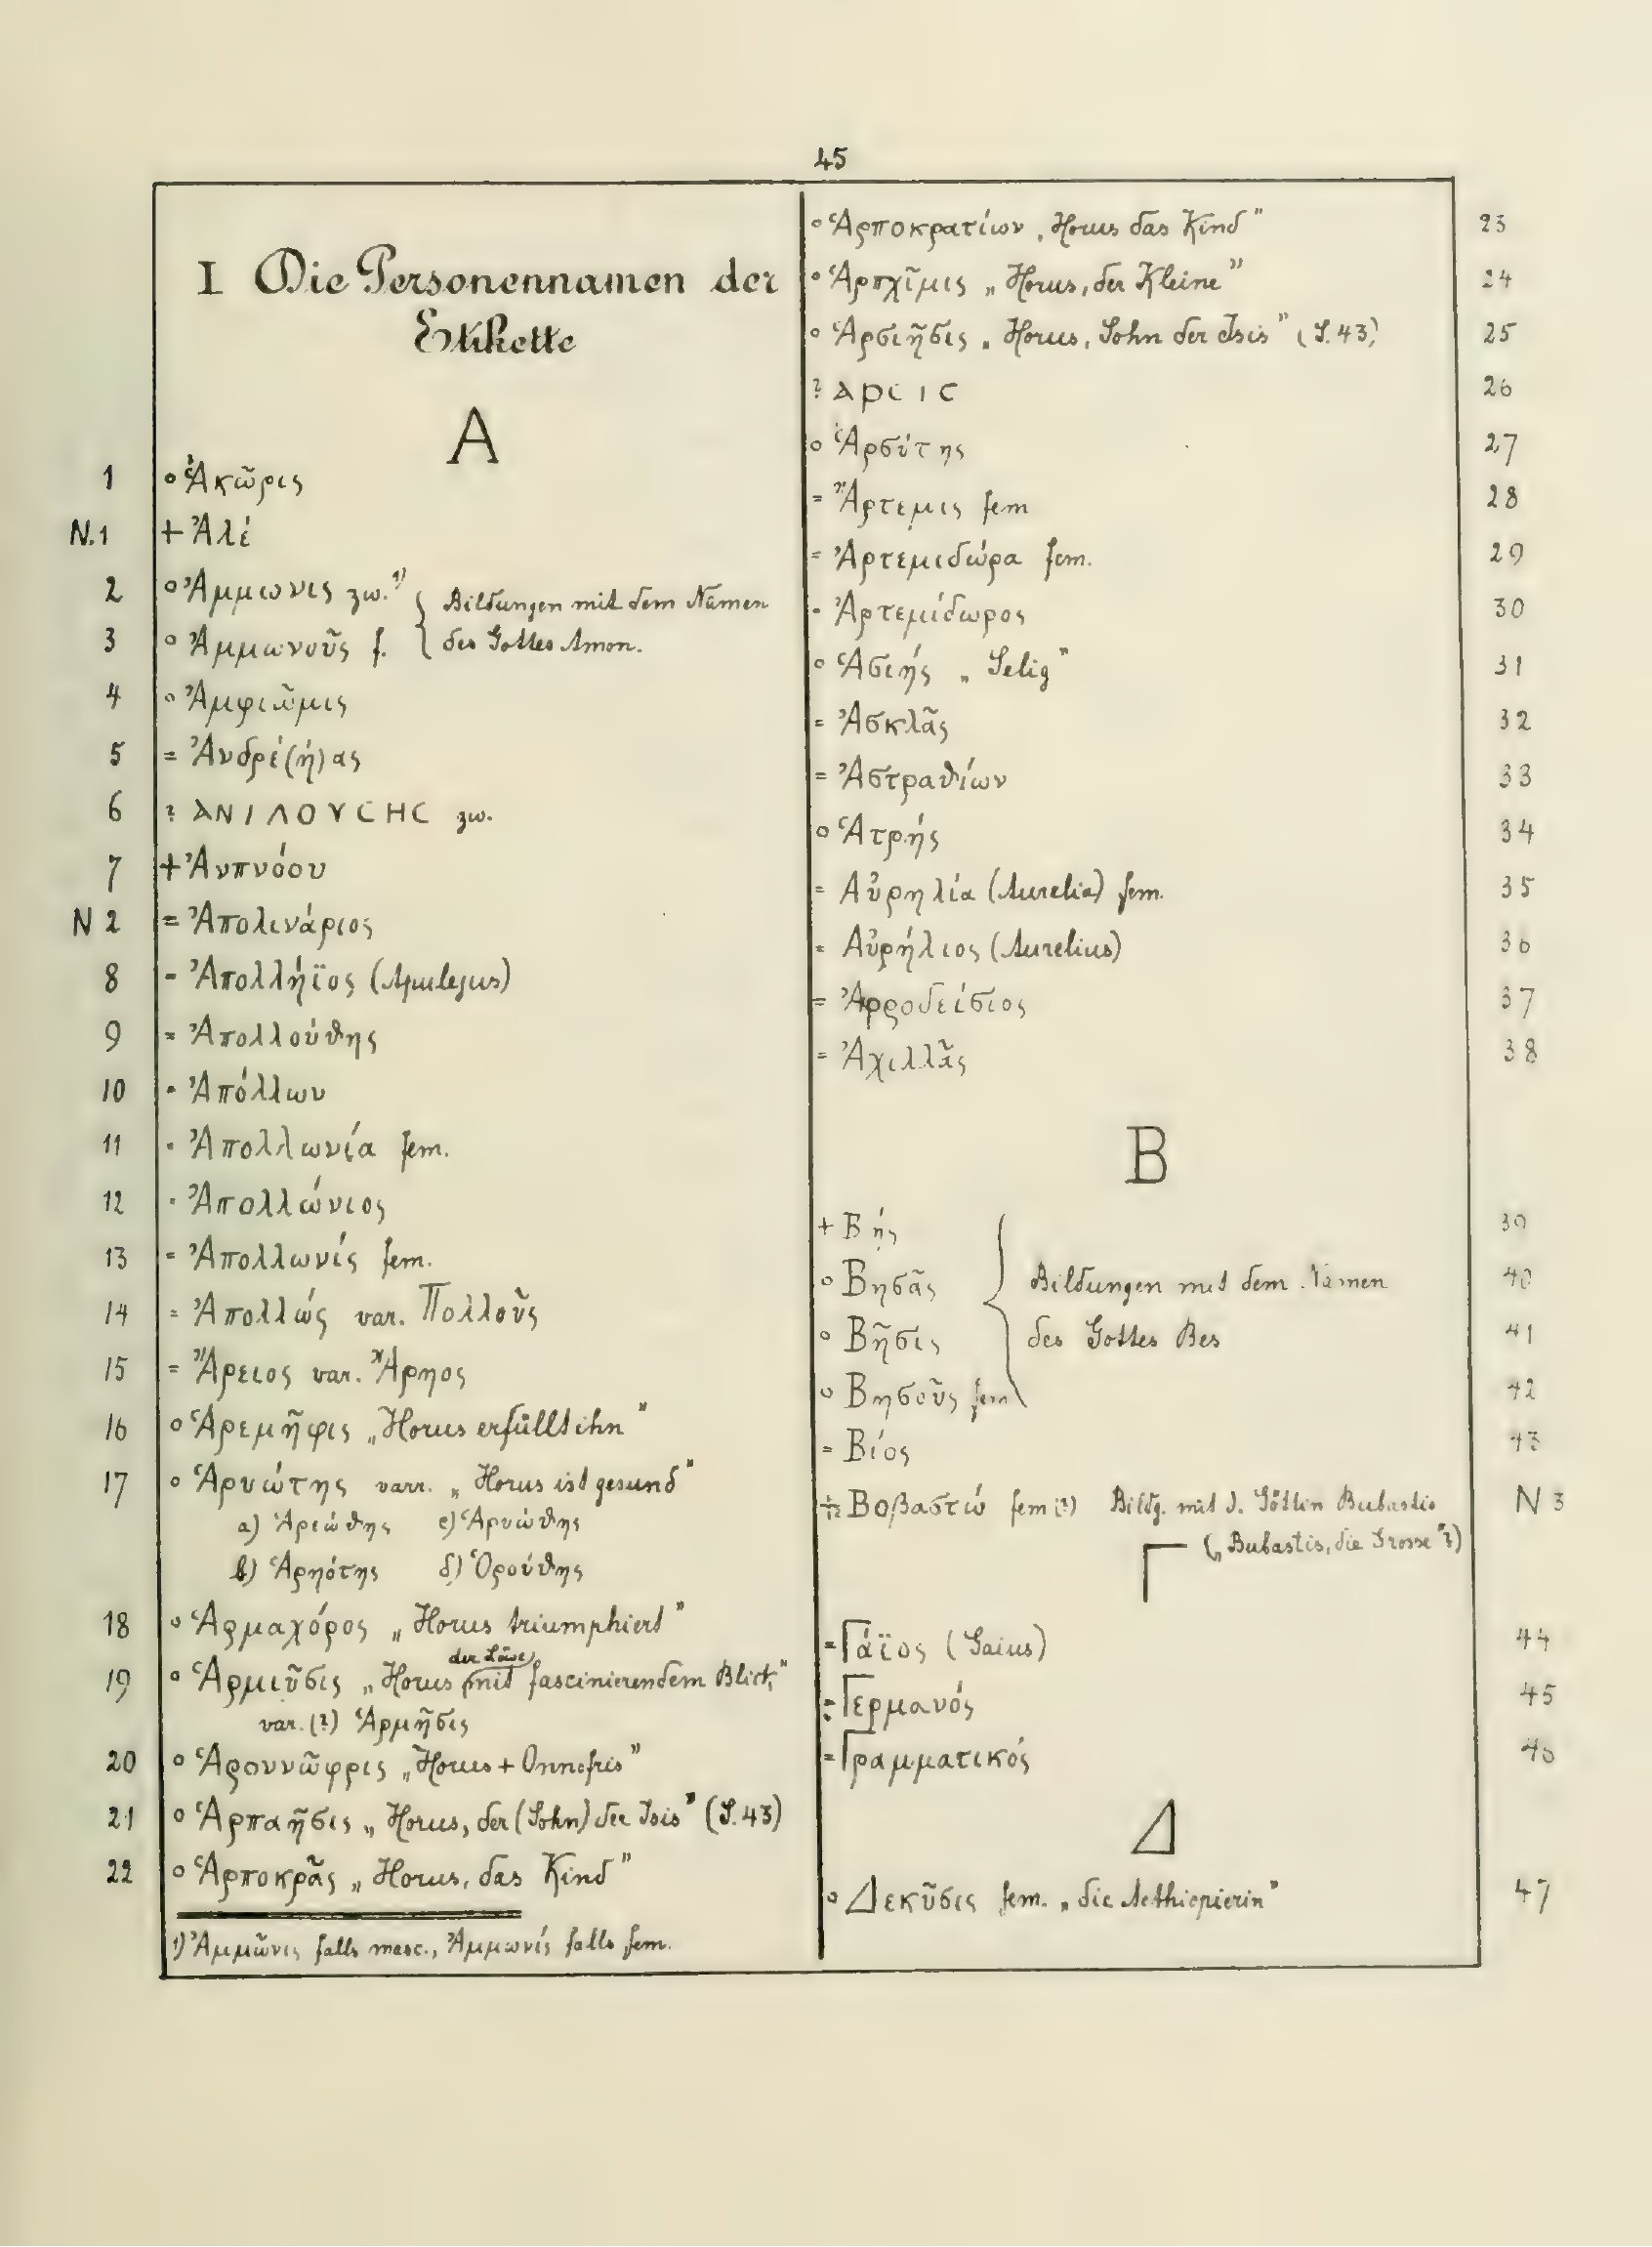 45
I Die Personennamen der
Etikette
A
1 ○ Ἀκῶρις
N.1 + Ἀλέ
2 ○ Ἀμμωνις зw. ¹⁾ { Bildungen mit dem Namen
3 ○ Ἀμμωνοῦς f. des Gottes Amon.
4 ○ Ἀμφιῶμις
5 = Ἀνδρέ(ή)ας
6 ? ΑΝΙΛΟΥCΗC зw.
7 + Ἀνπνόου
N 2 = Ἀπολινάριος
8 = Ἀπολλήϊος (Apulejus)
9 = Ἀπολλούθης
10 = Ἀπόλλων
11 = Ἀπολλωνία fem.
12 = Ἀπολλώνιος
13 = Ἀπολλωνίς fem.
14 = Ἀπολλώς var. Πολλοῦς
15 = Ἄρειος var. Ἄρηος
16 ○ Ἁρεμῆφις „Horus erfüllt ihn"
17 ○ Ἁρυώτης varr. „Horus ist gesund"
a) Ἁριώθης c) Ἁρυώθης
b) Ἁρηότης δ) Ὁρούθης
18 ○ Ἁρμαχόρος „Horus triumphiert"
der Löwe
19 ○ Ἁρμιῦσις „Horus mit fascinierendem Blick"
var. (?) Ἁρμῆσις
20 ○ Ἁρουννῶφρις „Horus + Onnofris"
21 ○ Ἁρπαῆσις „Horus, der (Sohn) der Isis" (S. 43)
22 ○ Ἁρποκρᾶς „Horus, das Kind"
1) Ἀμμῶνις falls masc., Ἀμμωνίς falls fem.
○ Ἁρποκρατίων „Horus das Kind" 23
○ Ἁρπχῖμις „Horus, der Kleine" 24
○ Ἁρσιῆσις „Horus, Sohn der Isis" (S. 43) 25
? ΑΡCΙC 26
○ Ἁρσύτης 27
= Ἄρτεμις fem 28
= Ἀρτεμιδώρα fem. 29
= Ἀρτεμίδωρος 30
○ Ἁσιής „Selig" 31
= Ἀσκλᾶς 32
= Ἀστραθίων 33
○ Ἁτρής 34
= Αὐρηλία (Aurelia) fem. 35
= Αὐρήλιος (Aurelius) 36
= Ἀφροδείσιος 37
= Ἀχιλλᾶς 38
B
+ Βής 39
○ Βησᾶς { Bildungen mit dem Namen 40
○ Βῆσις des Gottes Bes 41
○ Βησοῦς fem 42
= Βίος 43
Βοβαστώ fem (?) Bildg. mit d. Göttin Bubastis N 3
(„Bubastis, die Grosse"?)
Γ
= Γάϊος (Gaius) 44
= Γερμανός 45
= Γραμματικός 46
Δ
○ Δεκῦσις fem. „die Aethiopierin" 47